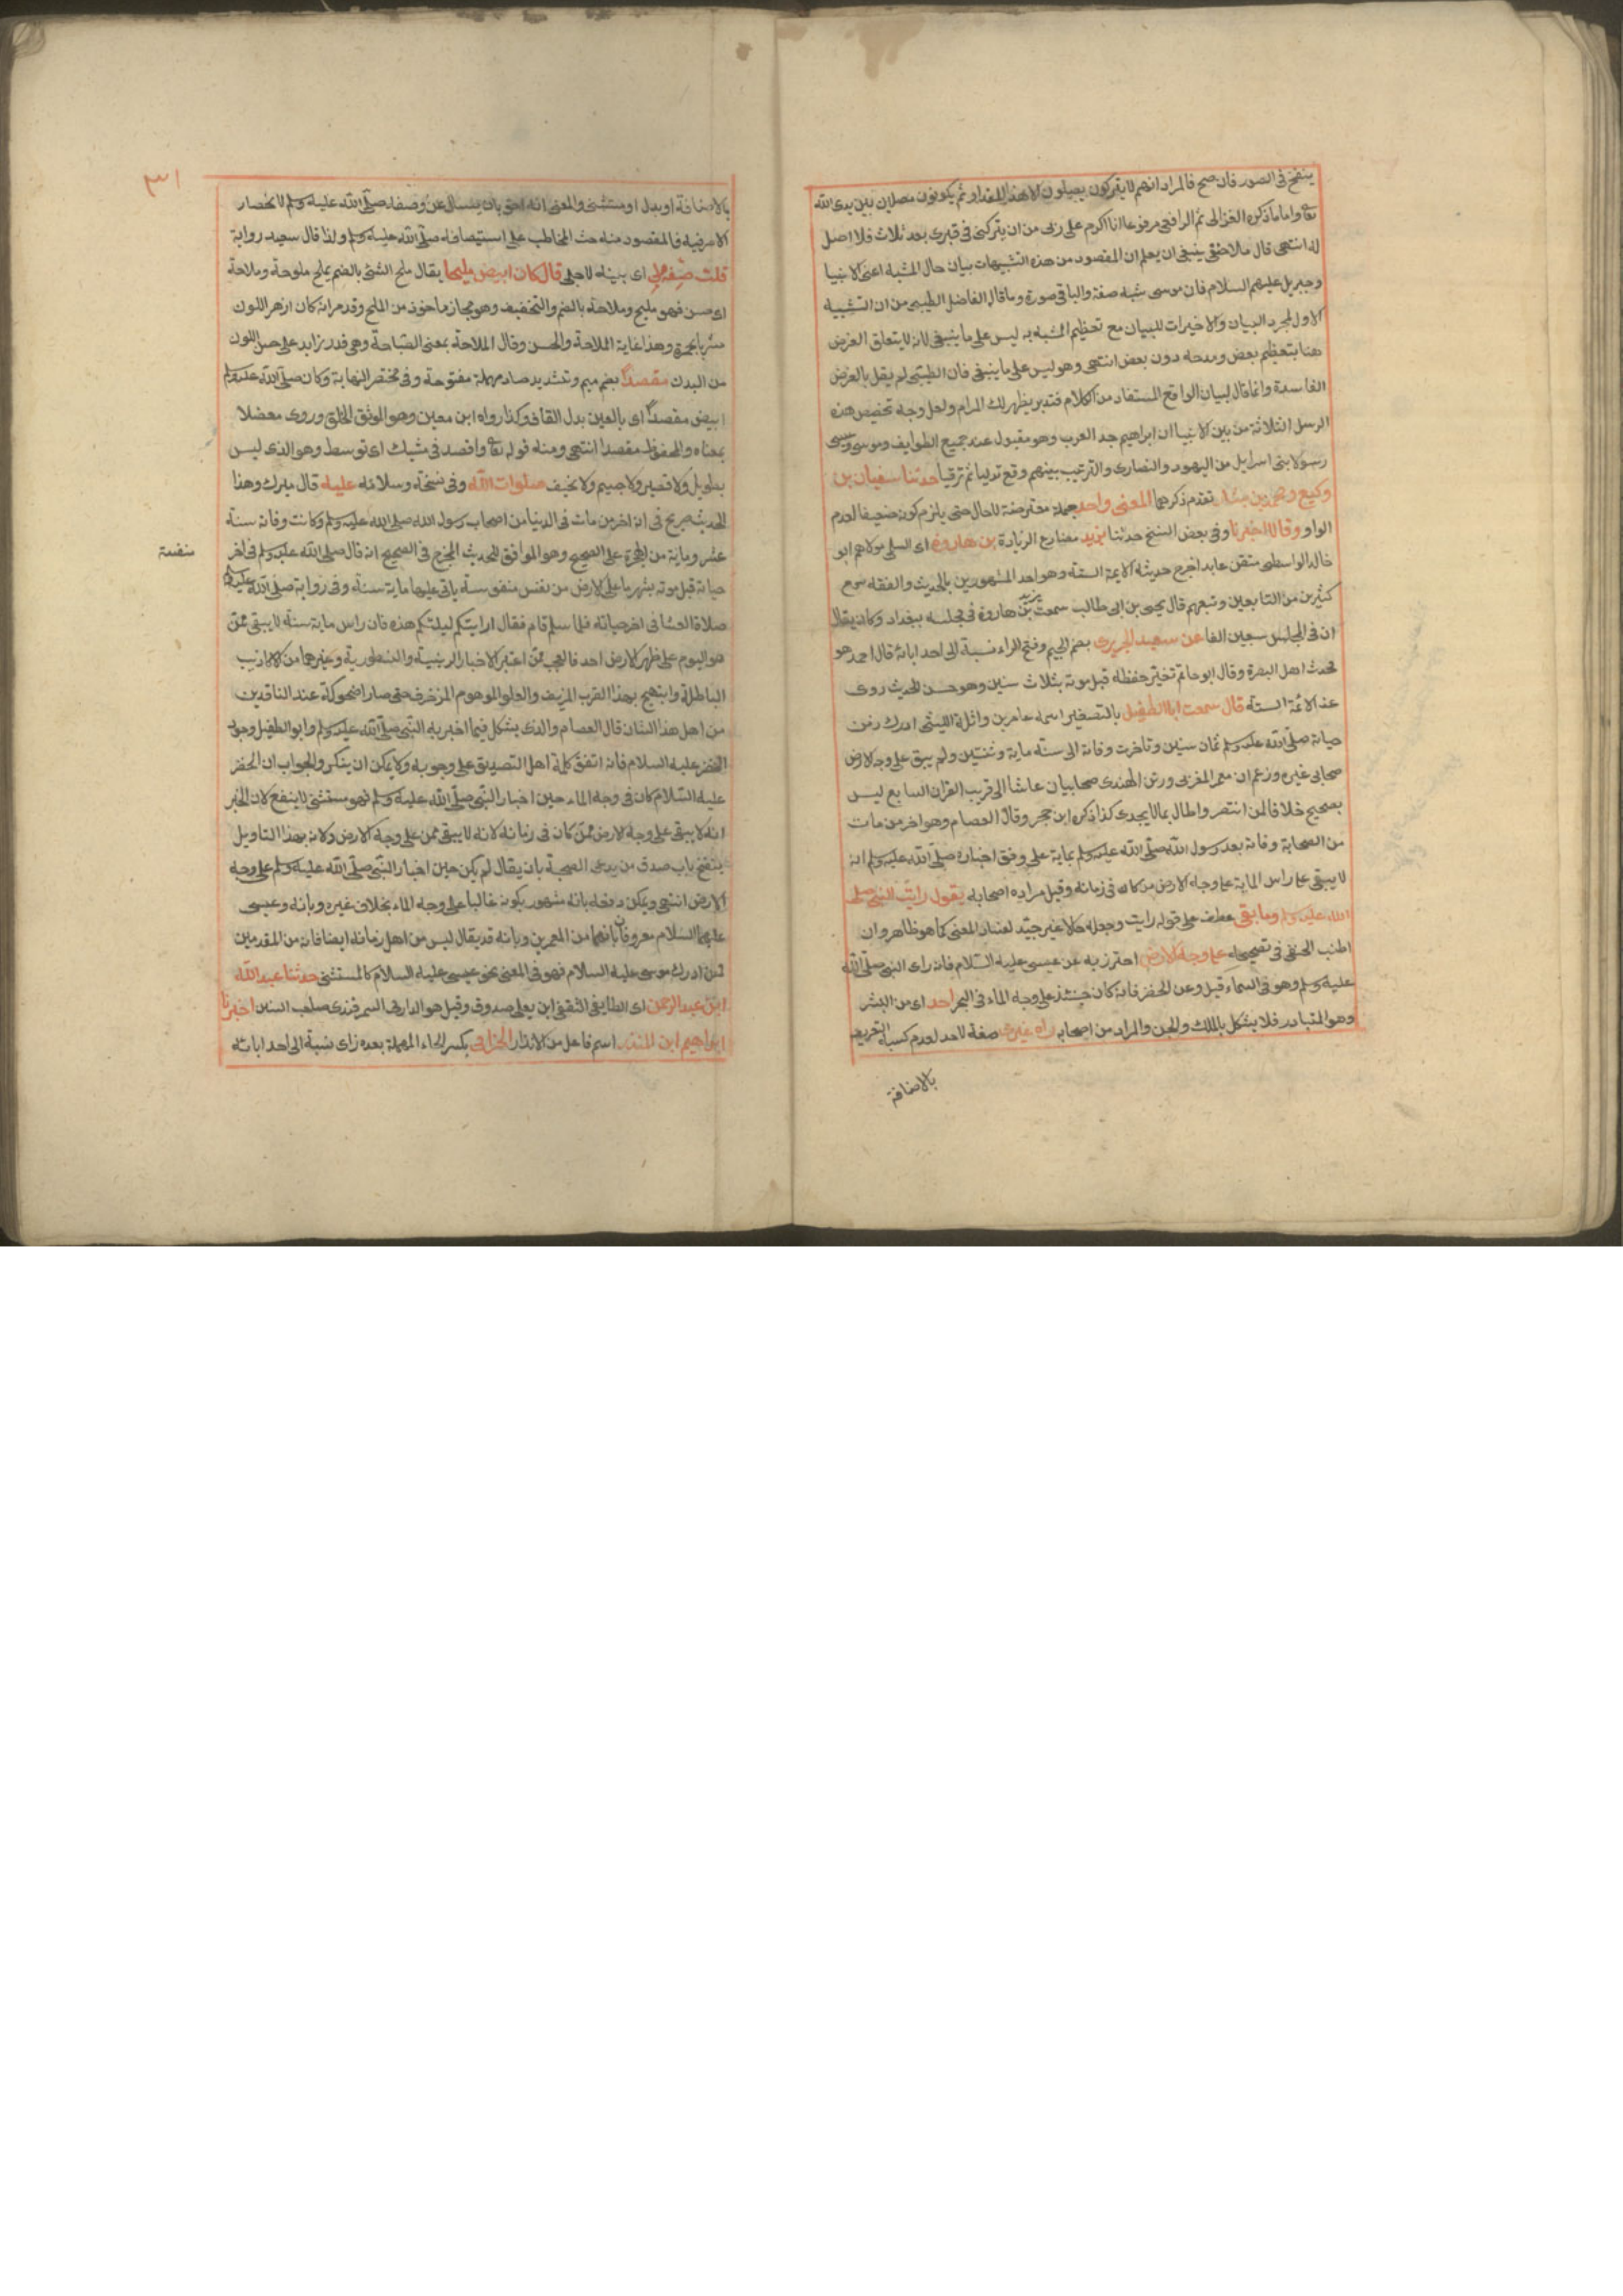 ينفخ في الصور فان صح فالمراد انهم لا يتركون يصلون الا هذا المقدار ثم يكونون مصلين بين يدى الله
تعا واما ما ذكره الغزالى ثم الرافعى مرفوعا انا اكرم على ربى من ان يتركنى فى قبرى بعد ثلاث فلا اصل
له انتهى قال ملا حنفى ينبغى ان يعلم ان المقصود من هذه التشبيهات بيان حال المشبه اعنى الانبيا
وجبريل عليهم السلام فان موسى شبه صفة والباقى صورة وما قاله الفاضل الطيبى من ان التشبيه
الاول لمجرد البيان والاخيرات للبيان مع تعظيم المشبه به ليس على ما ينبغى لانه لا يتعلق الغرض
هنا بتعظيم بعض ومدحه دون بعض انتهى وهو ليس على ما ينبغى فان الطيبى لم يقل بالغرض
الفاسدة وانما قال لبيان الواقع المستفاد من الكلام فتدبر يظهر لك المرام ولعل وجه تخصيص هذه
الرسل الثلاثة من بين الانبيا ان ابراهيم جد العرب وهو مقبول عند جميع الطوايف وموسى وعيسى
رسولا بنى اسرايل من اليهود والنصارى والترتيب بينهم وقع تدليا ثم ترقيا حدثنا سفيان بن
وكيع ومحمد بن بشار تقدم ذكرهما المعنى واحد جملة معترضة لا حال حتى يلزم كونه ضعيفا لعدم
الواو وقالا اخبرنا وفى بعض النسخ حدثنا يزيد مضارع الزيادة بن هارون اى السلمى مولاهم ابو
خالد الواسطى متقن عابد اخرج حديثه الايمة الستة وهو احد المشهورين بالحديث والفقه سمع
كثيرين من التابعين وتبعهم قال يحيى بن ابى طالب سمعت يزيد بن هارون فى مجلسه ببغداد وكان يقال
ان فى المجلس سبعين الفا عن سعيد الجريرى بضم الجيم وفتح الراء نسبة الى احد ابائه قال احمد هو
محدث اهل البصرة وقال ابو حاتم تغير حفظه قبل موته بثلاث سنين وهو حسن الحديث روى
عنه الائمة الستة قال سمعت ابا الطفيل بالتصغير اسمه عامر بن واثلة الليثى ادرك زمن
حياته صلى الله عليه وسلم ثمان سنين وتاخرت وفاته الى سنة ماية وثنتين ولم يبق على وجه الارض
صحابى غيره وزعم ان معمر المغربى ورتن الهندى صحابيان عاشا الى قريب القران السابع ليس
بصحيح خلافا لمن انتصر واطال بما لا يجدى كذا ذكره ابن حجر وقال العصام وهو اخر من مات
من الصحابة وفاته بعد رسول الله صلى الله عليه وسلم بماية على وفق اخباره صلى الله عليه وسلم انه
لا يبقى على راس الماية على وجه الارض من كان فى زمانه وقيل مراده اصحابه يقول رايت النبى صلى
الله عليه وسلم وما بقى عطف على قوله رايت وجعله حالا غير جيد لفساد المعنى كما هو ظاهر وان
اطنب الحنفى فى تصحيحه على وجه الارض احترز به عن عيسى عليه السلام فانه راى النبى صلى الله
عليه وسلم وهو فى السماء قيل وعن الخضر فانه كان حينئذ على وجه الماء فى البحر احد اى من البشر
وهو المتبادر فلا يشكل بالملك والجن والمراد من اصحابه راه غيرى صفة لاحد لعدم كسبه التعريف
بالاضافة
٣١
بالاضافة او بدل او مستثنى والمعنى انه احق بان يسال عن وصفه صلى الله عليه وسلم لانحصار
الامر فيه فالمقصود منه حث المخاطب على استيصافه صلى الله عليه وسلم ولذا قال سعيد رواية
قلت صفه لى اى بينه لاجلى قال كان ابيض مليحا يقال ملح الشئ بالضم يملح ملوحة وملاحة
اى حسن فهو مليح وملاحة بالضم والتخفيف وهو مجاز ماخوذ من الملح وقد مر انه كان ازهر اللون
مشربا بحمرة وهذا غاية الملاحة والحسن وقال الملاحة بمعنى الصباحة وهى قدر زايد على حسن اللون
من البدن مقصدا بضم ميم وتشديد صاد مهملة مفتوحة وفى مختصر النهاية وكان صلى الله عليه وسلم
ابيض مقصدا اى بالعين بدل القاف وكذا رواه ابن معين وهو الموثق الخلق وروى معضلا
بمعناه والمحفوظ مقصدا انتهى ومنه قوله تعا واقصد فى مشيك اى توسط وهو الذى ليس
بطويل ولا قصير ولا جسيم ولا نحيف صلوات الله وفى نسخة وسلامه عليه قال ميرك وهذا
الحديث صريح فى انه اخر من مات فى الدنيا من اصحاب رسول الله صلى الله عليه وسلم وكانت وفاته سنة
عشر وماية من الهجرة على الصحيح وهو الموافق للحديث المخرج فى الصحيح انه قال صلى الله عليه وسلم فى اخر
منفسة
حياته قبل موته بشهر ما على الارض من نفس منفوسة ياتى عليها ماية سنة وفى رواية صلى الله عليه وسلم
صلاة العشا فى اخر حياته فلما سلم قام فقال ارايتكم ليلتكم هذه فان راس ماية سنة لا يبقى ممن
هو اليوم على ظهر الارض احد فالعجب ممن اعتبر الاخبار الرتنية والنسطورية وغيرهما من الاكاذيب
الباطلة وابتهج بهذا القرب المزيف والعلو الموهوم المزخرف حتى صار اضحوكة عند الناقدين
من اهل هذا الشان قال العصام والذى يشكل فيما اخبر به النبى صلى الله عليه وسلم وابو الطفيل وجود
الخضر عليه السلام فانه اتفق كلمة اهل التصديق على وجوبه ولا يمكن ان ينكر والجواب ان الخضر
عليه السلام كان فى وجه الماء حين اخبار النبى صلى الله عليه وسلم فهو مستثنى لا ينفع لان الخبر
انه لا يبقى على وجه الارض ممن كان فى زمانه لا انه لا يبقى ممن على وجه الارض ولانه بهذا التاويل
ينفتح باب صدق من يدعى الصحبة بان يقال لم يكن حين اخبار النبى صلى الله عليه وسلم على وجه
الارض انتهى ويمكن دفعه بانه مشهور بكونه غالبا على وجه الماء بخلاف غيره وبانه وعيسى
عليهما السلام معروفان بانهما من المعمرين وبانه قد يقال ليس من اهل زمانه ايضا فانه من المقدمين
ممن ادرك موسى عليه السلام فهو فى المعنى نحو عيسى عليه السلام كالمستثنى حدثنا عبد الله
ابن عبد الرحمن اى الطايفى الثقفى ابن يعلى صدوق وقيل هو الدارمى السمرقندى صاحب السنن اخبرنا
ابراهيم ابن المنذر اسم فاعل من الانذار الحزامى بكسر الحاء المهملة بعده زاى نسبة الى احد ابائه